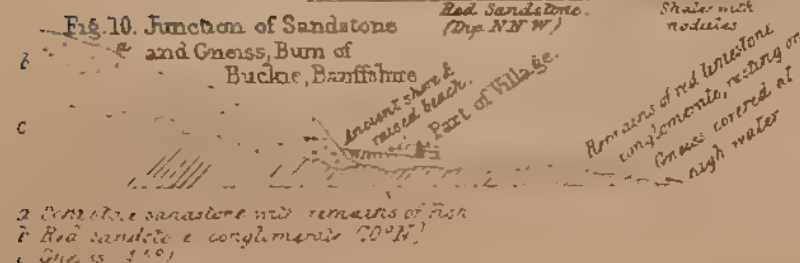 Red Sandstone.
(Dip N N W)
Shales with
nodules
Fig. 10. Junction of Sandstone
and Gneiss, Burn of
Buckie, Banffshire
a
b
c
Ancient shore &
raised beach.
Part of Village.
Remains of red limestone
conglomerate, resting on
Gneiss covered at
high water
a sandstone with remains of Fish
b Red conglomerate
c Gneiss